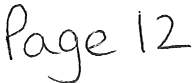 Page 12